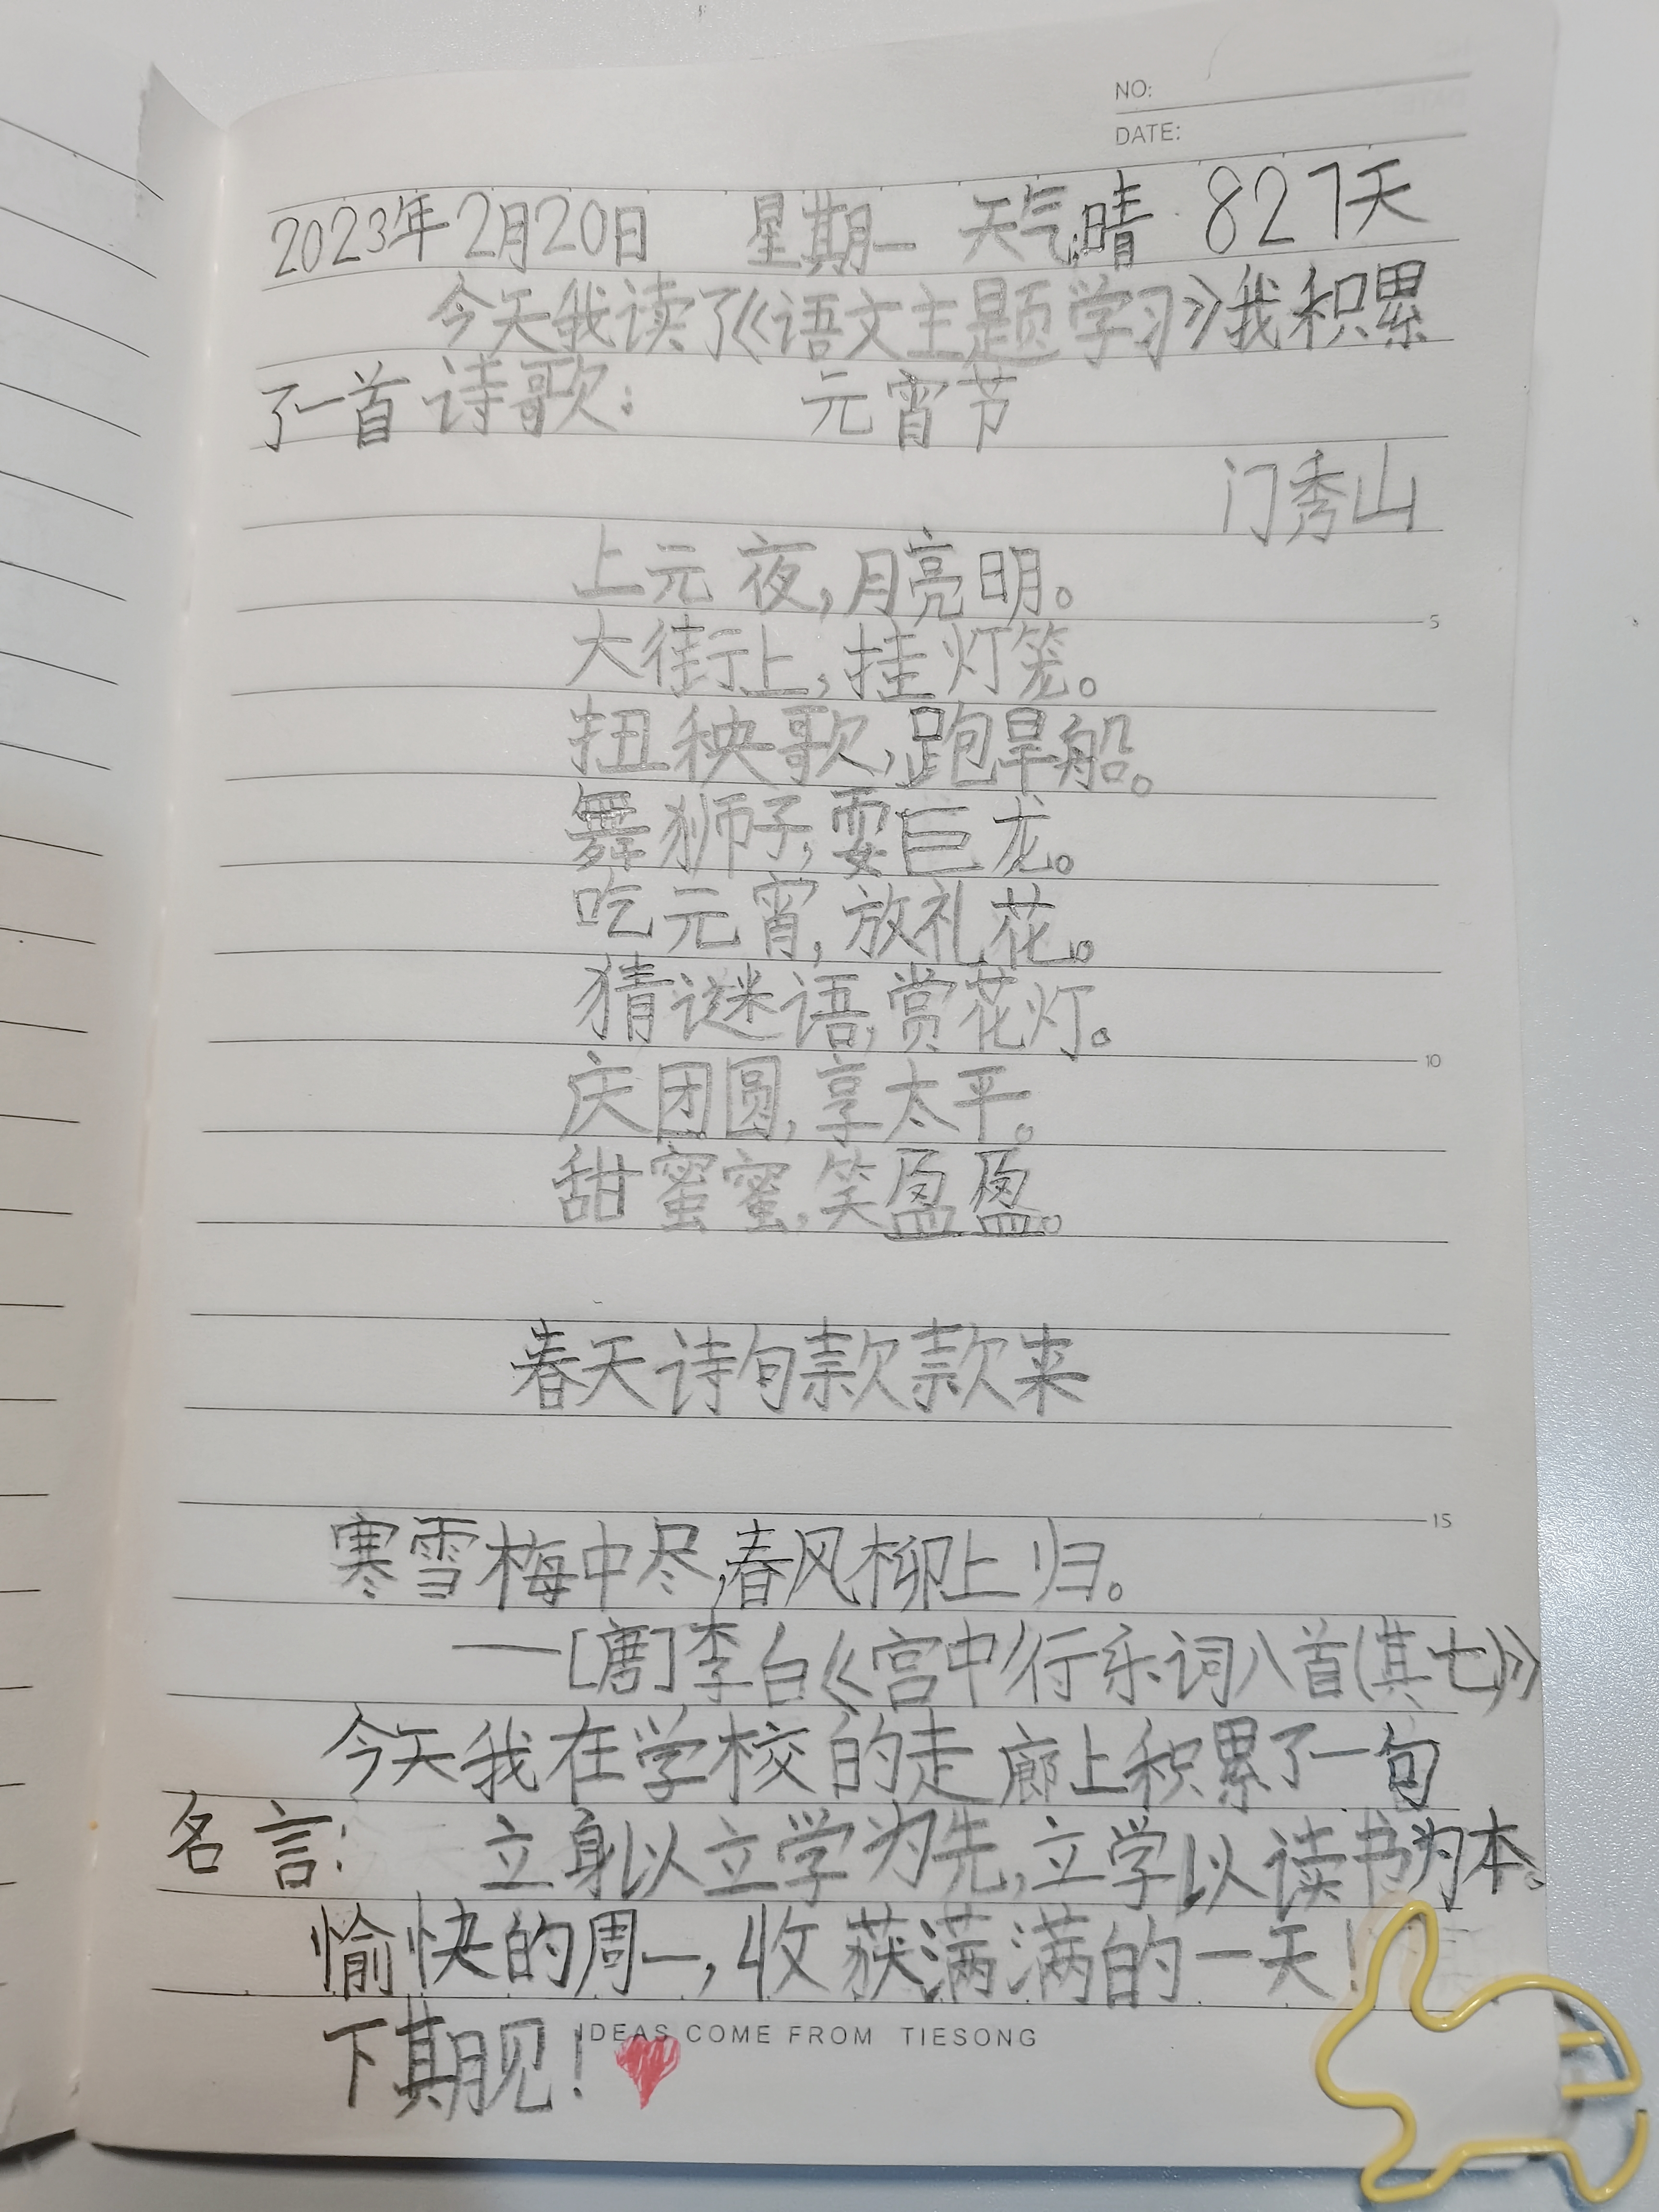 NO:
DATE:
2023年2月20日 星期一 天气:晴 827天
今天我读了《语文主题学习》我积累
了一首诗歌: 元宵节
门秀山
上元夜,月亮明。
大街上,挂灯笼。
扭秧歌,跑旱船。
舞狮子,耍巨龙。
吃元宵,放礼花。
猜谜语,赏花灯。
庆团圆,享太平。
甜蜜蜜,笑盈盈。
春天诗句款款来
寒雪梅中尽,春风柳上归。
——[唐]李白《宫中行乐词八首(其七)》
今天我在学校的走廊上积累了一句
名言: 立身以立学为先,立学以读书为本。
愉快的周一,收获满满的一天!
下期见!
IDEAS COME FROM TIESONG
5
10
15